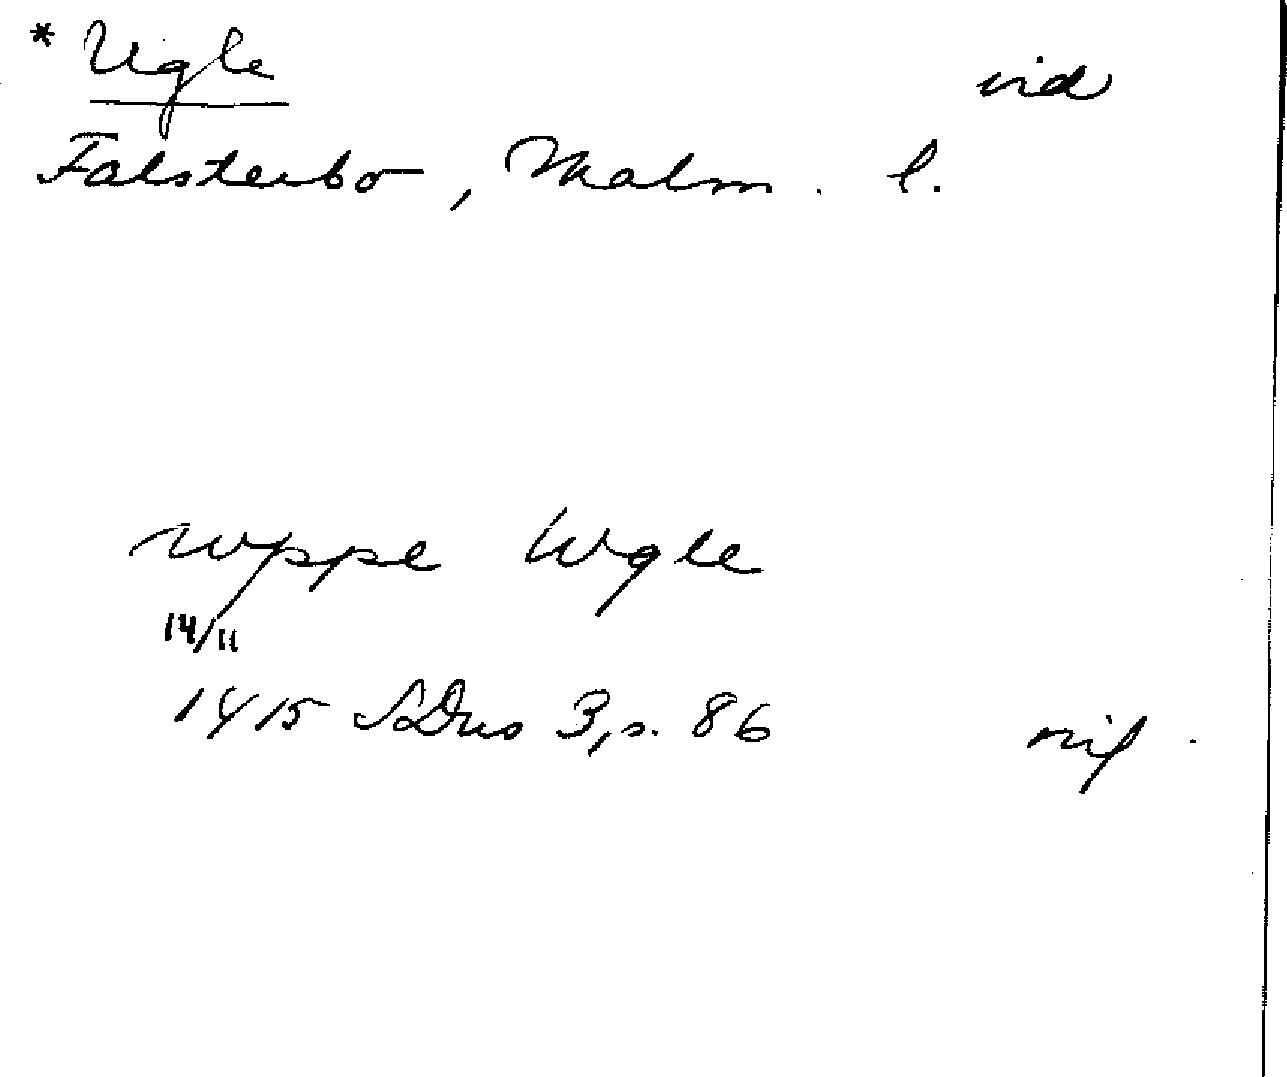 * Ugle ind
Falsterbo, Malm. l.
uppe Wgle
14/11
1415 SDns 3, s. 86 nif.